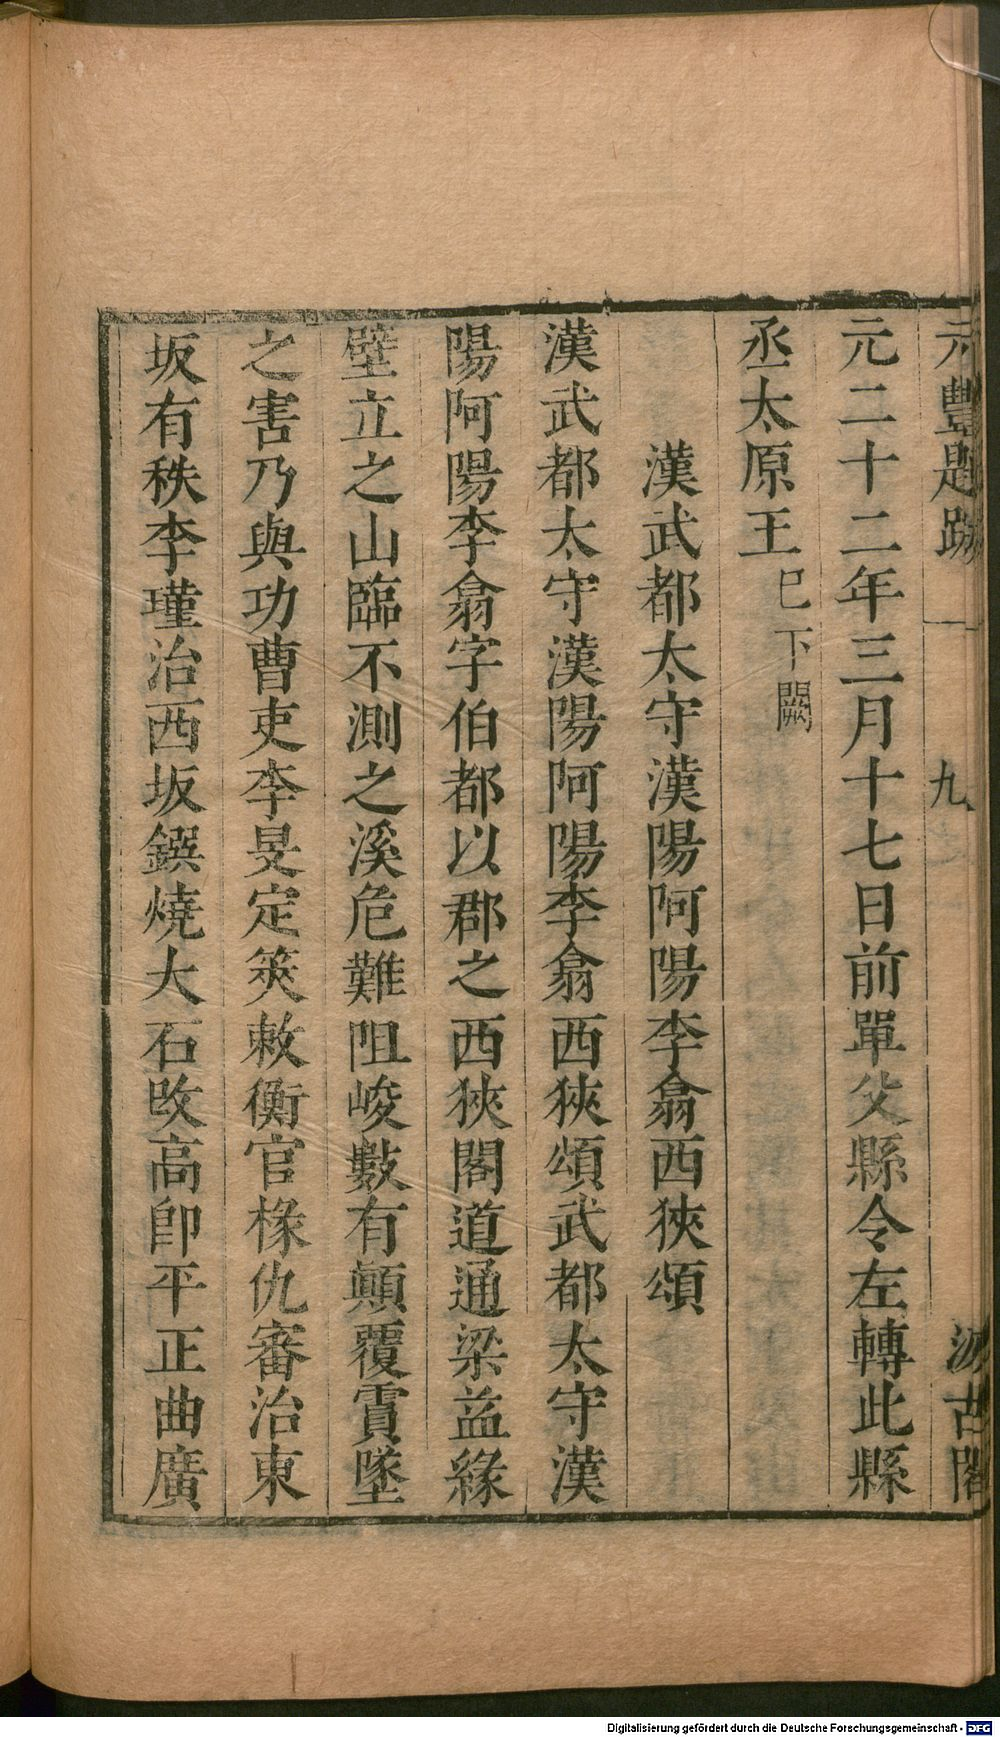 元豐題跋 九 汲古閣
元二十二年三月十七日前單父縣令左轉此縣
丞太原王巳下闕
漢武都太守漢陽阿陽李翕西狹頌
漢武都太守漢陽阿陽李翕西狹頌武都太守漢
陽阿陽李翕字伯都以郡之西狹閣道通梁益緣
壁立之山臨不測之溪危難阻峻數有顛覆霣墜
之害乃與功曹吏李旻定筴敕衡官椽仇審治東
坂有秩李瑾治西坂鐉燒大石改高即平正曲廣
Digitalisierung gefördert durch die Deutsche Forschungsgemeinschaft - DFG